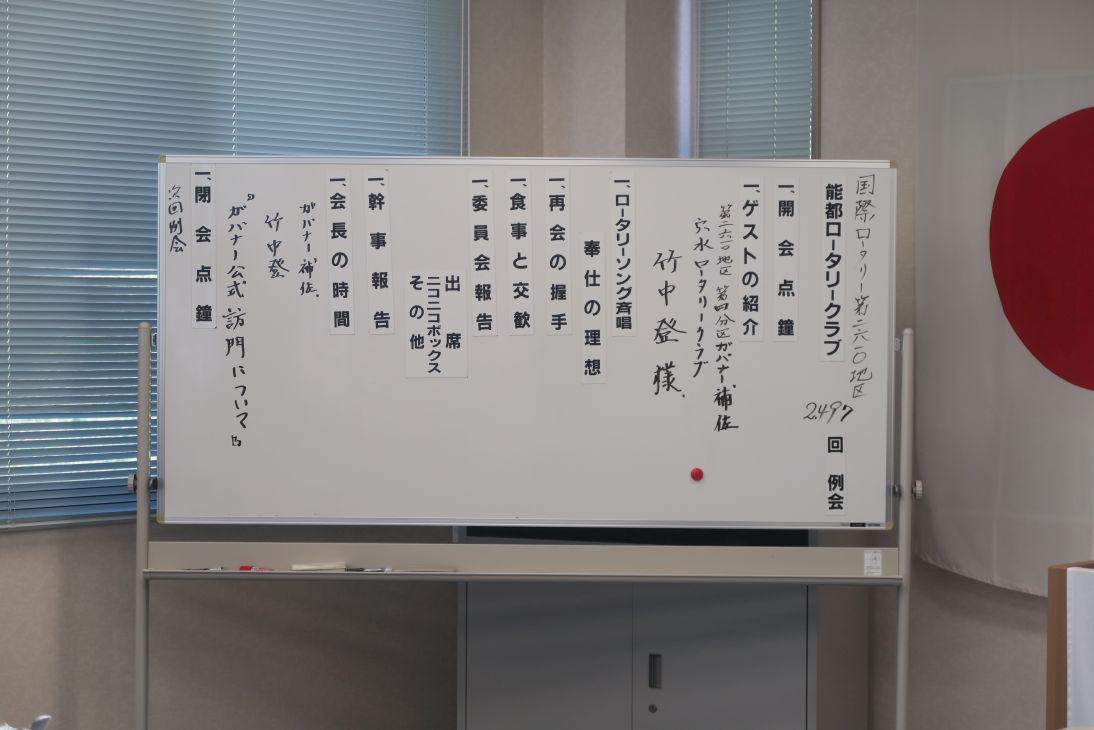 国際ロータリー第二六一〇地区
能都ロータリークラブ
2,497 回 例会
一、開会点鐘
一、ゲストの紹介
第二六一〇地区 第四分区ガバナー補佐
穴水ロータリークラブ
竹中登 様.
一、ロータリーソング斉唱
奉仕の理想
一、再会の握手
一、食事と交歓
一、委員会報告
出席
ニコニコボックス
その他
一、幹事報告
一、会長の時間
ガバナー補佐.
竹中登
〝ガバナー公式訪門について〟
一、閉会点鐘
次回例会